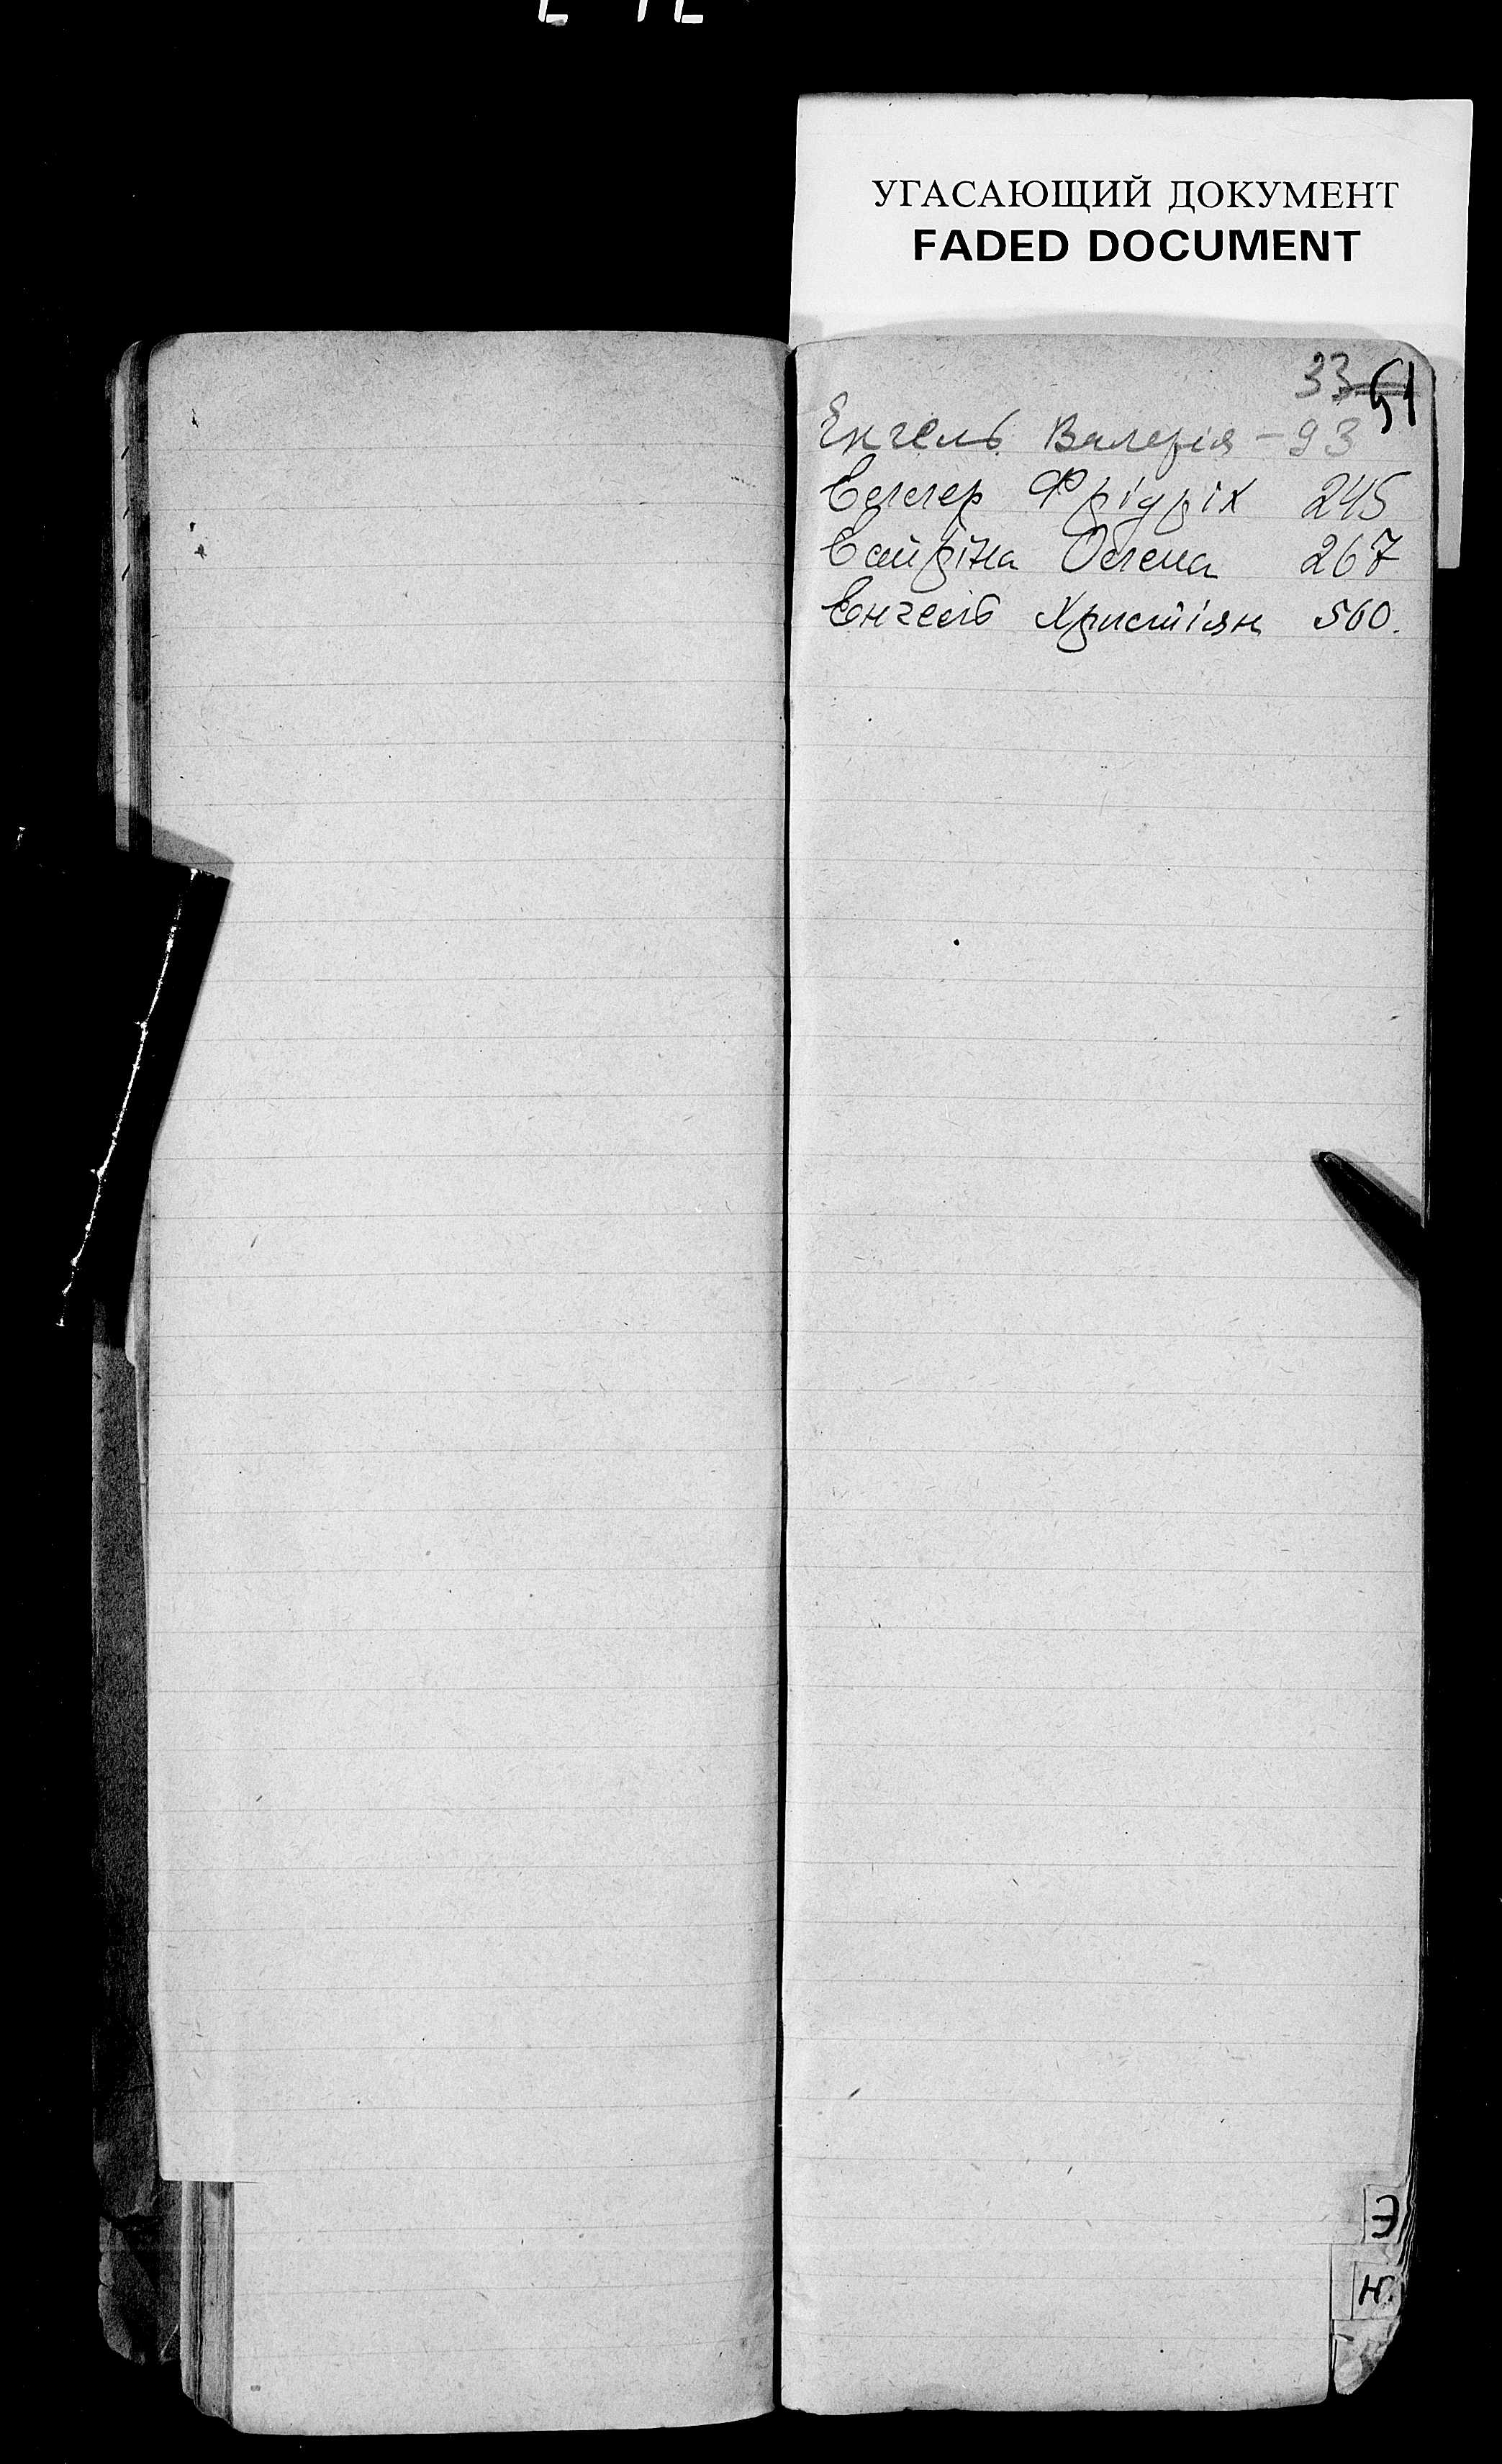 УГАСАЮЩИЙ ДОКУМЕНТ
FADED DOCUMENT
33 51
Енгель Валерія - 93
Еллер Фрідріх 245
Олена 267
Енгель Христіян 560.
Э